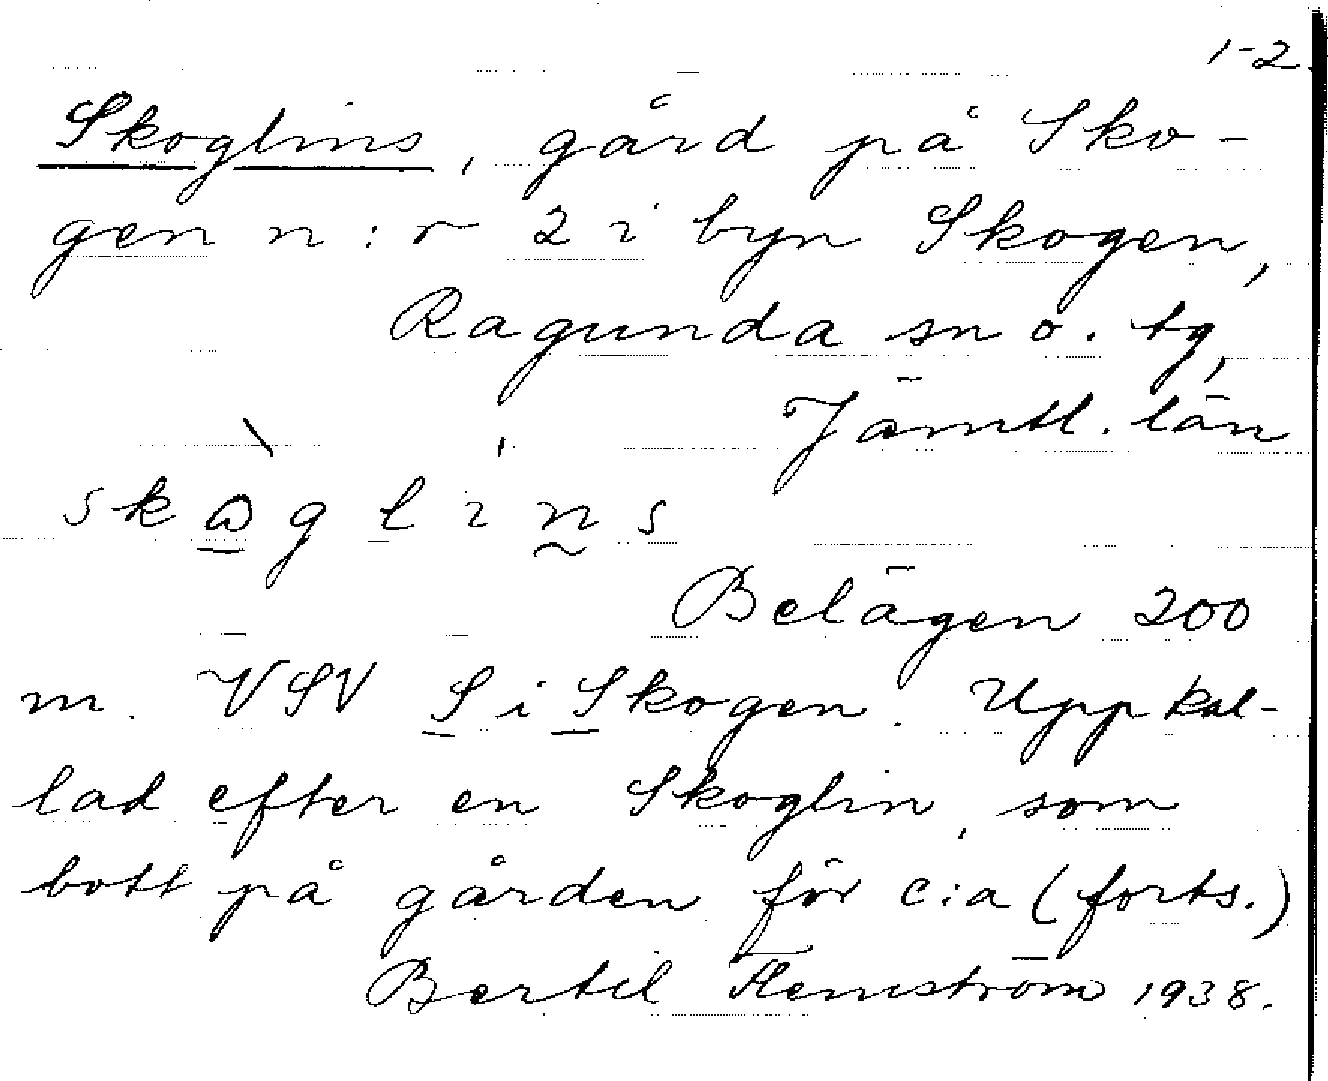 1-2.
Skoglins, gård på Sko-
gen n:r 2 i byn Skogen,
Ragunda sn o. tg,
Jämtl. län
skòglins
Belägen 200
m. VSV S i Skogen. Uppkal-
lad efter en Skoglin, som
bott på gården för c:a (forts.)
Bertil Flemström 1938.